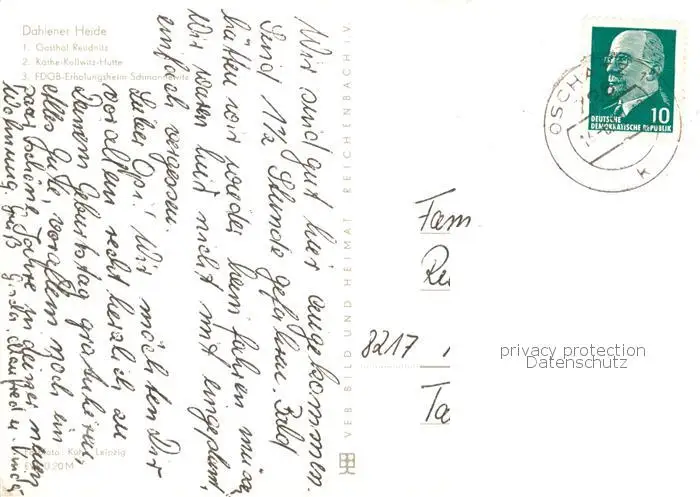 Dahlener Heide
1. Gasthof Reudnitz
2. Käthe-Kollwitz-Hütte
3. FDGB-Erholungsheim Schmannewitz
Wir sind gut hier angekommen.
Sind 1½ Stunde gefahren. Bald
hätten wir wieder heim fahren müssen
Wir waren hier nicht mit eingeplant,
einfach vergessen.
Lieber Opi! Wir möchten Dir
vor allem recht herzlich zu
Deinem Geburtstag gratulieren,
alles Gute, vor allem noch ein
paar schöne Jahre in deiner neuen
Wohnung. Gruß Manfred u.
Foto: Leipzig
0,20 M
VEB BILD UND HEIMAT REICHENBACH i. V.
OSCHA
K
10
DEUTSCHE
DEMOKRATISCHE REPUBLIK
Fam
Re
8217
Ta
privacy protection
Datenschutz